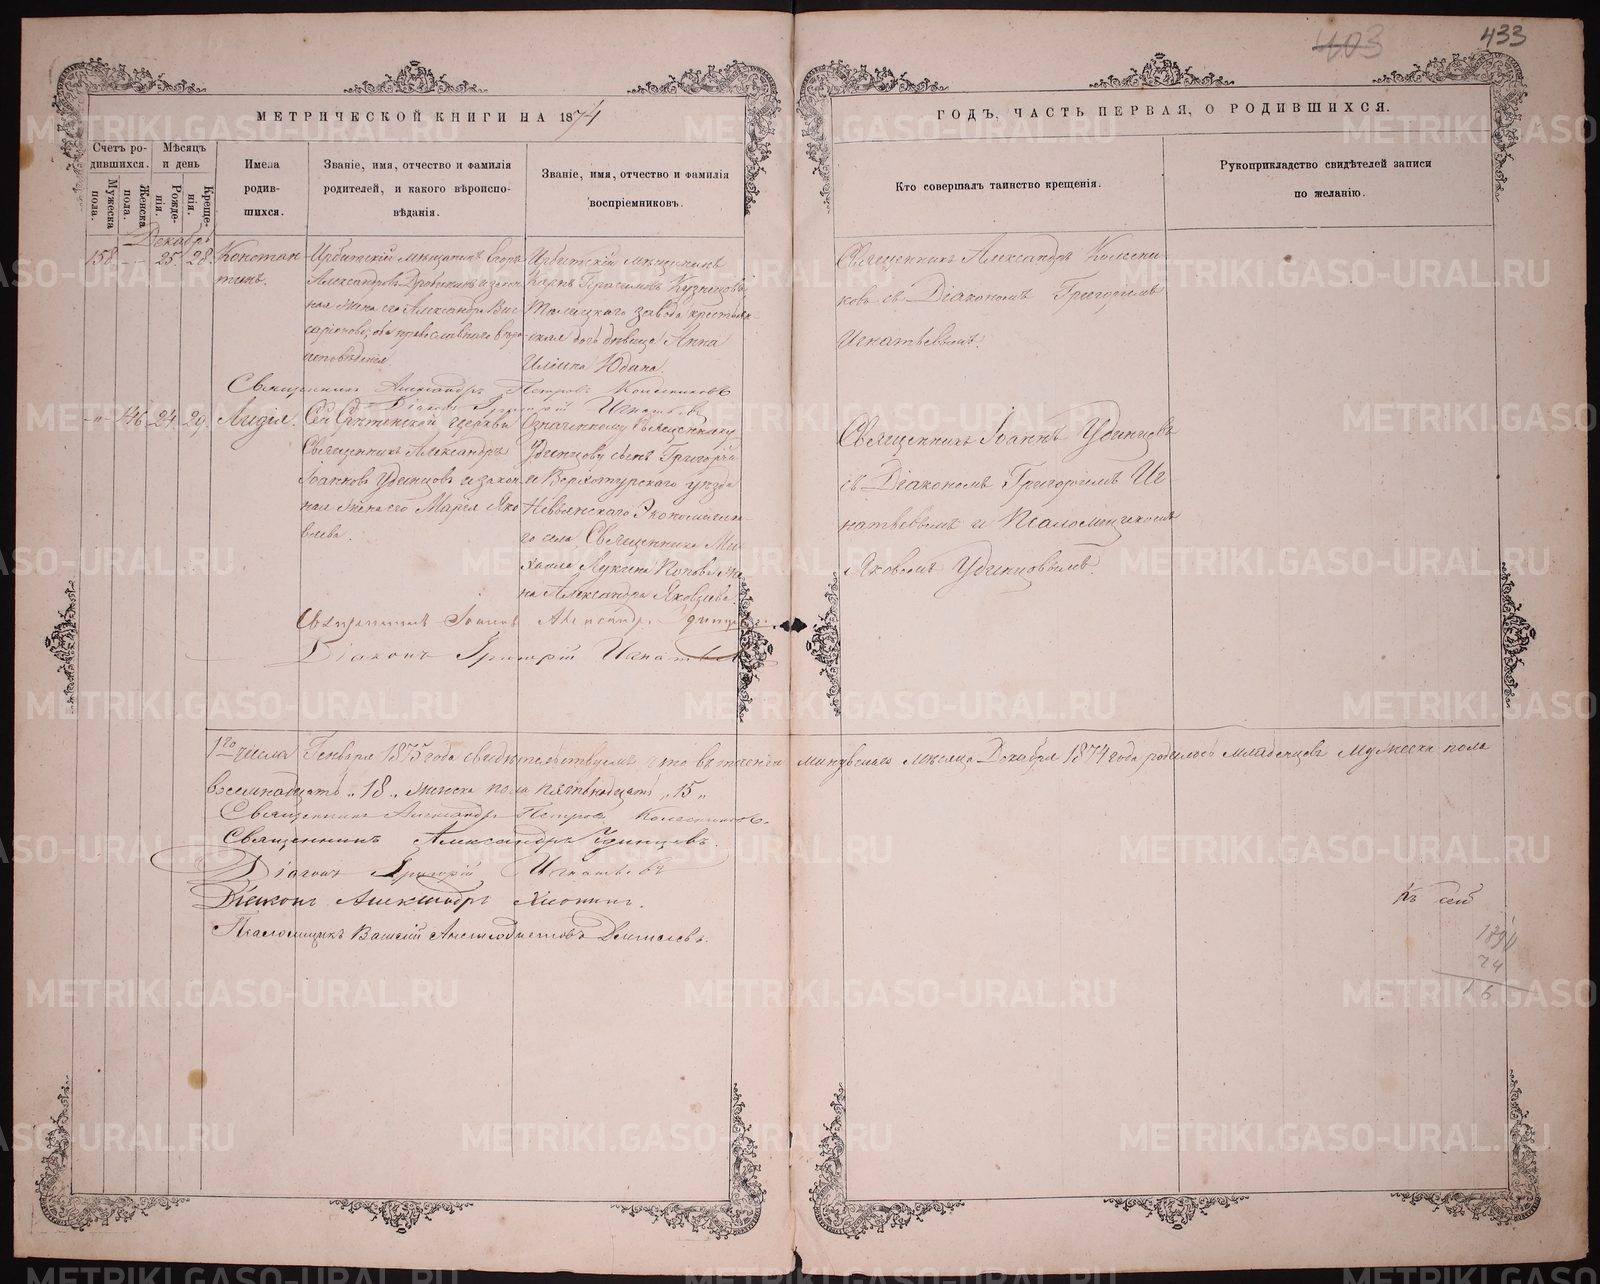 403 433
МЕТРИЧЕСКОЙ КНИГИ НА 1874
ГОДЪ, ЧАСТЬ ПЕРВАЯ, О РОДИВШИХСЯ.
Счетъ родившихся.
Мужеска пола.
Женска пола.
Мѣсяцъ и день
Рожденія.
Крещенія.
Имена родившихся.
Званіе, имя, отчество и фамилія родителей, и какого вѣроисповѣданія.
Званіе, имя, отчество и фамилія воспріемниковъ.
Кто совершалъ таинство крещенія.
Рукоприкладство свидѣтелей записи по желанію.
Декабрь
158 25 28
Констан
тинъ.
Ирбитскій мѣщанинъ Егоръ
Александровъ и закон
ная жена его Александра Вис
саріонова, оба православнаго вѣро
исповѣданія
Ирбитскій мѣщанинъ
Карпъ Герасимовъ Кузнецовъ,
завода крестьян
ская дочь дѣвица Анна
Юдина.
Священникъ Александръ Колесни
ковъ съ Діакономъ Григоріемъ
Игнатьевымъ.
Священникъ Александръ Петровъ Колесниковъ
Діаконъ Григорій Игнатьевъ
-"- 146 24 29
Лидія.
Сей Срѣтенской церкви
Священникъ Александръ
Іоанновъ Удинцовъ и закон
ная жена его Марія Яко
влева.
Означенному Священнику
Удинцову сынъ Григорій
и Верхотурскаго уѣзда
Невьянскаго Экономическа-
го села Священника Ми-
хаила Лукина Попова же
на Александра Яковлева.
Священникъ Іоаннъ Удинцовъ
съ Діакономъ Григоріемъ Иг-
натьевымъ и Псаломщикомъ
Яковомъ Удинцовымъ.
Священникъ Іоанновъ Александръ Удинцовъ.
Діаконъ Григорій Игнатьевъ
1го числа Генваря 1875 года свидѣтельствуемъ, что въ теченіи минувшаго мѣсяца Декабря 1874 года родилось младенцевъ мужеска пола
восемнадцать „18„ женска пола пятнадцать „15„
Священникъ Александръ Петровъ Колесниковъ.
Священникъ Александръ Удинцевъ.
Діаконъ Григорій Игнатьевъ
Діаконъ Александръ
Псаломщикъ Василій
Къ сей
1891
74
16
METRIKI.GASO-URAL.RU